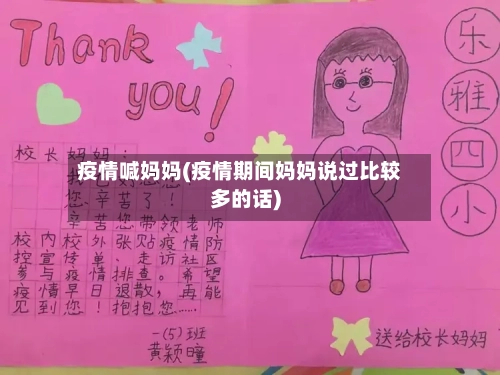 Thank
you!
乐
雅
四
小
校长妈妈:
疫情喊妈妈(疫情期间妈妈说过比较
多的话)
您辛苦了!
辛苦您带领老师
校内校外张贴疫情防
控宣传单、走访社区
参与疫情排查。希望
疫情早日退散,再能
见到您!抱抱您……
一(5)班
黄颖曈
送给校长妈妈